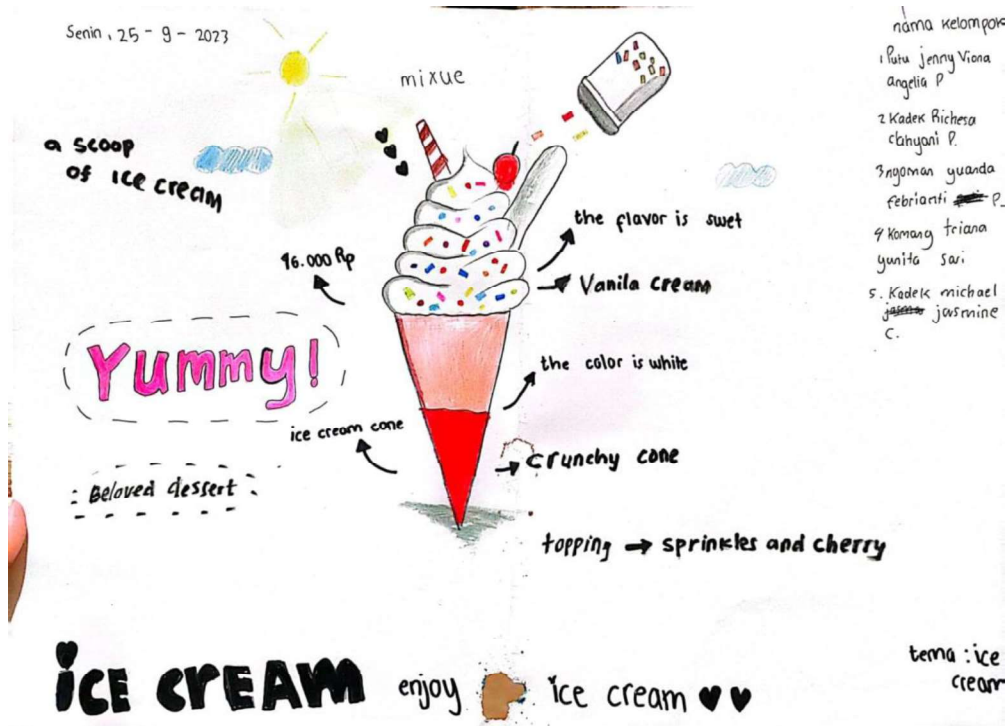 Senin, 25 - 9 - 2023
mixue
a scoop
of ice cream
16.000 Rp
Yummy!
ice cream cone
Beloved dessert
the flavor is swet
Vanila cream
the color is white
crunchy cone
topping → sprinkles and cherry
nama kelompok
1 Putu jenny Viona
angelia P
2 Kadek Richesa
cahyani P.
3 ngoman yuanda
febrianti P.
4 Komang triana
yunita sari
5. Kadek michael
jasmine
C.
iCE CREAM
enjoy ice cream
tema : ice
cream